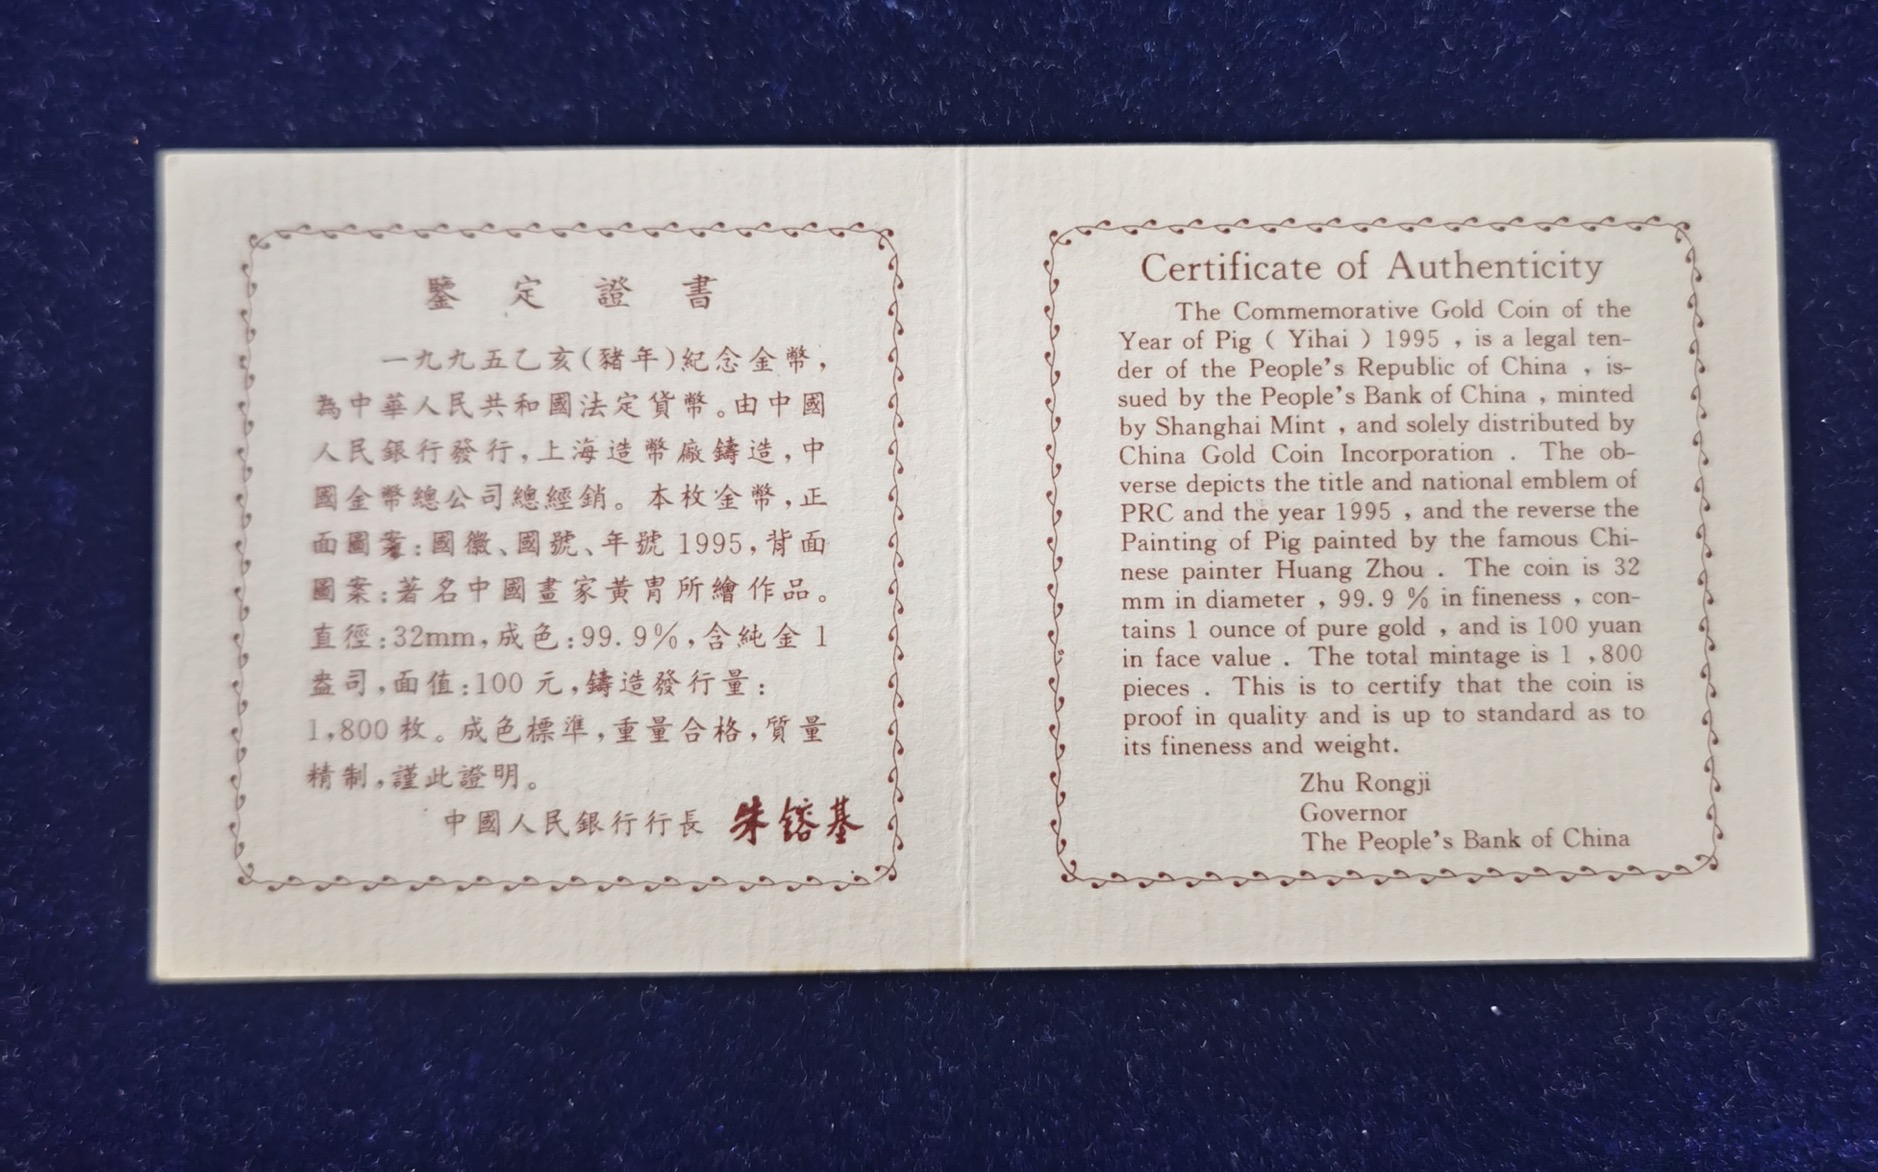 鑒定證書
一九九五乙亥(豬年)紀念金幣,
為中華人民共和國法定貨幣。由中國
人民銀行發行,上海造幣廠鑄造,中
國金幣總公司總經銷。本枚金幣,正
面圖案:國徽、國號、年號1995,背面
圖案:著名中國畫家黃胄所繪作品。
直徑:32mm,成色:99.9%,含純金1
盎司,面值:100元,鑄造發行量:
1,800枚。成色標準,重量合格,質量
精制,謹此證明。
中國人民銀行行長 朱鎔基
Certificate of Authenticity
The Commemorative Gold Coin of the
Year of Pig ( Yihai ) 1995 , is a legal ten-
der of the People's Republic of China , is-
sued by the People's Bank of China , minted
by Shanghai Mint , and solely distributed by
China Gold Coin Incorporation . The ob-
verse depicts the title and national emblem of
PRC and the year 1995 , and the reverse the
Painting of Pig painted by the famous Chi-
nese painter Huang Zhou . The coin is 32
mm in diameter , 99.9 % in fineness , con-
tains 1 ounce of pure gold , and is 100 yuan
in face value . The total mintage is 1 ,800
pieces . This is to certify that the coin is
proof in quality and is up to standard as to
its fineness and weight.
Zhu Rongji
Governor
The People's Bank of China